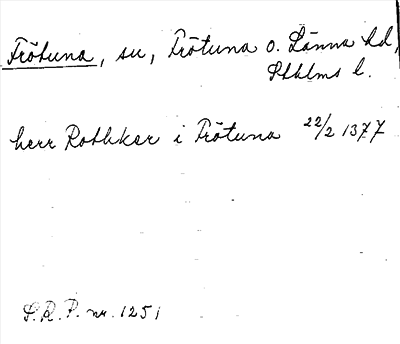 Frötuna, sn, Frötuna o. Länna hd,
Sthlms l.
herr Rothker i Frötuna 22/2 1377
S.R.P. nr. 1251